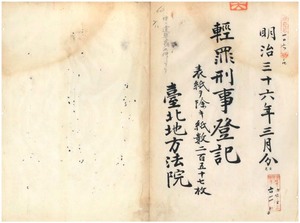 明治三十六年三月分
輕罪刑事登記
表紙ヲ除キ紙數二百五十七枚
臺北地方法院